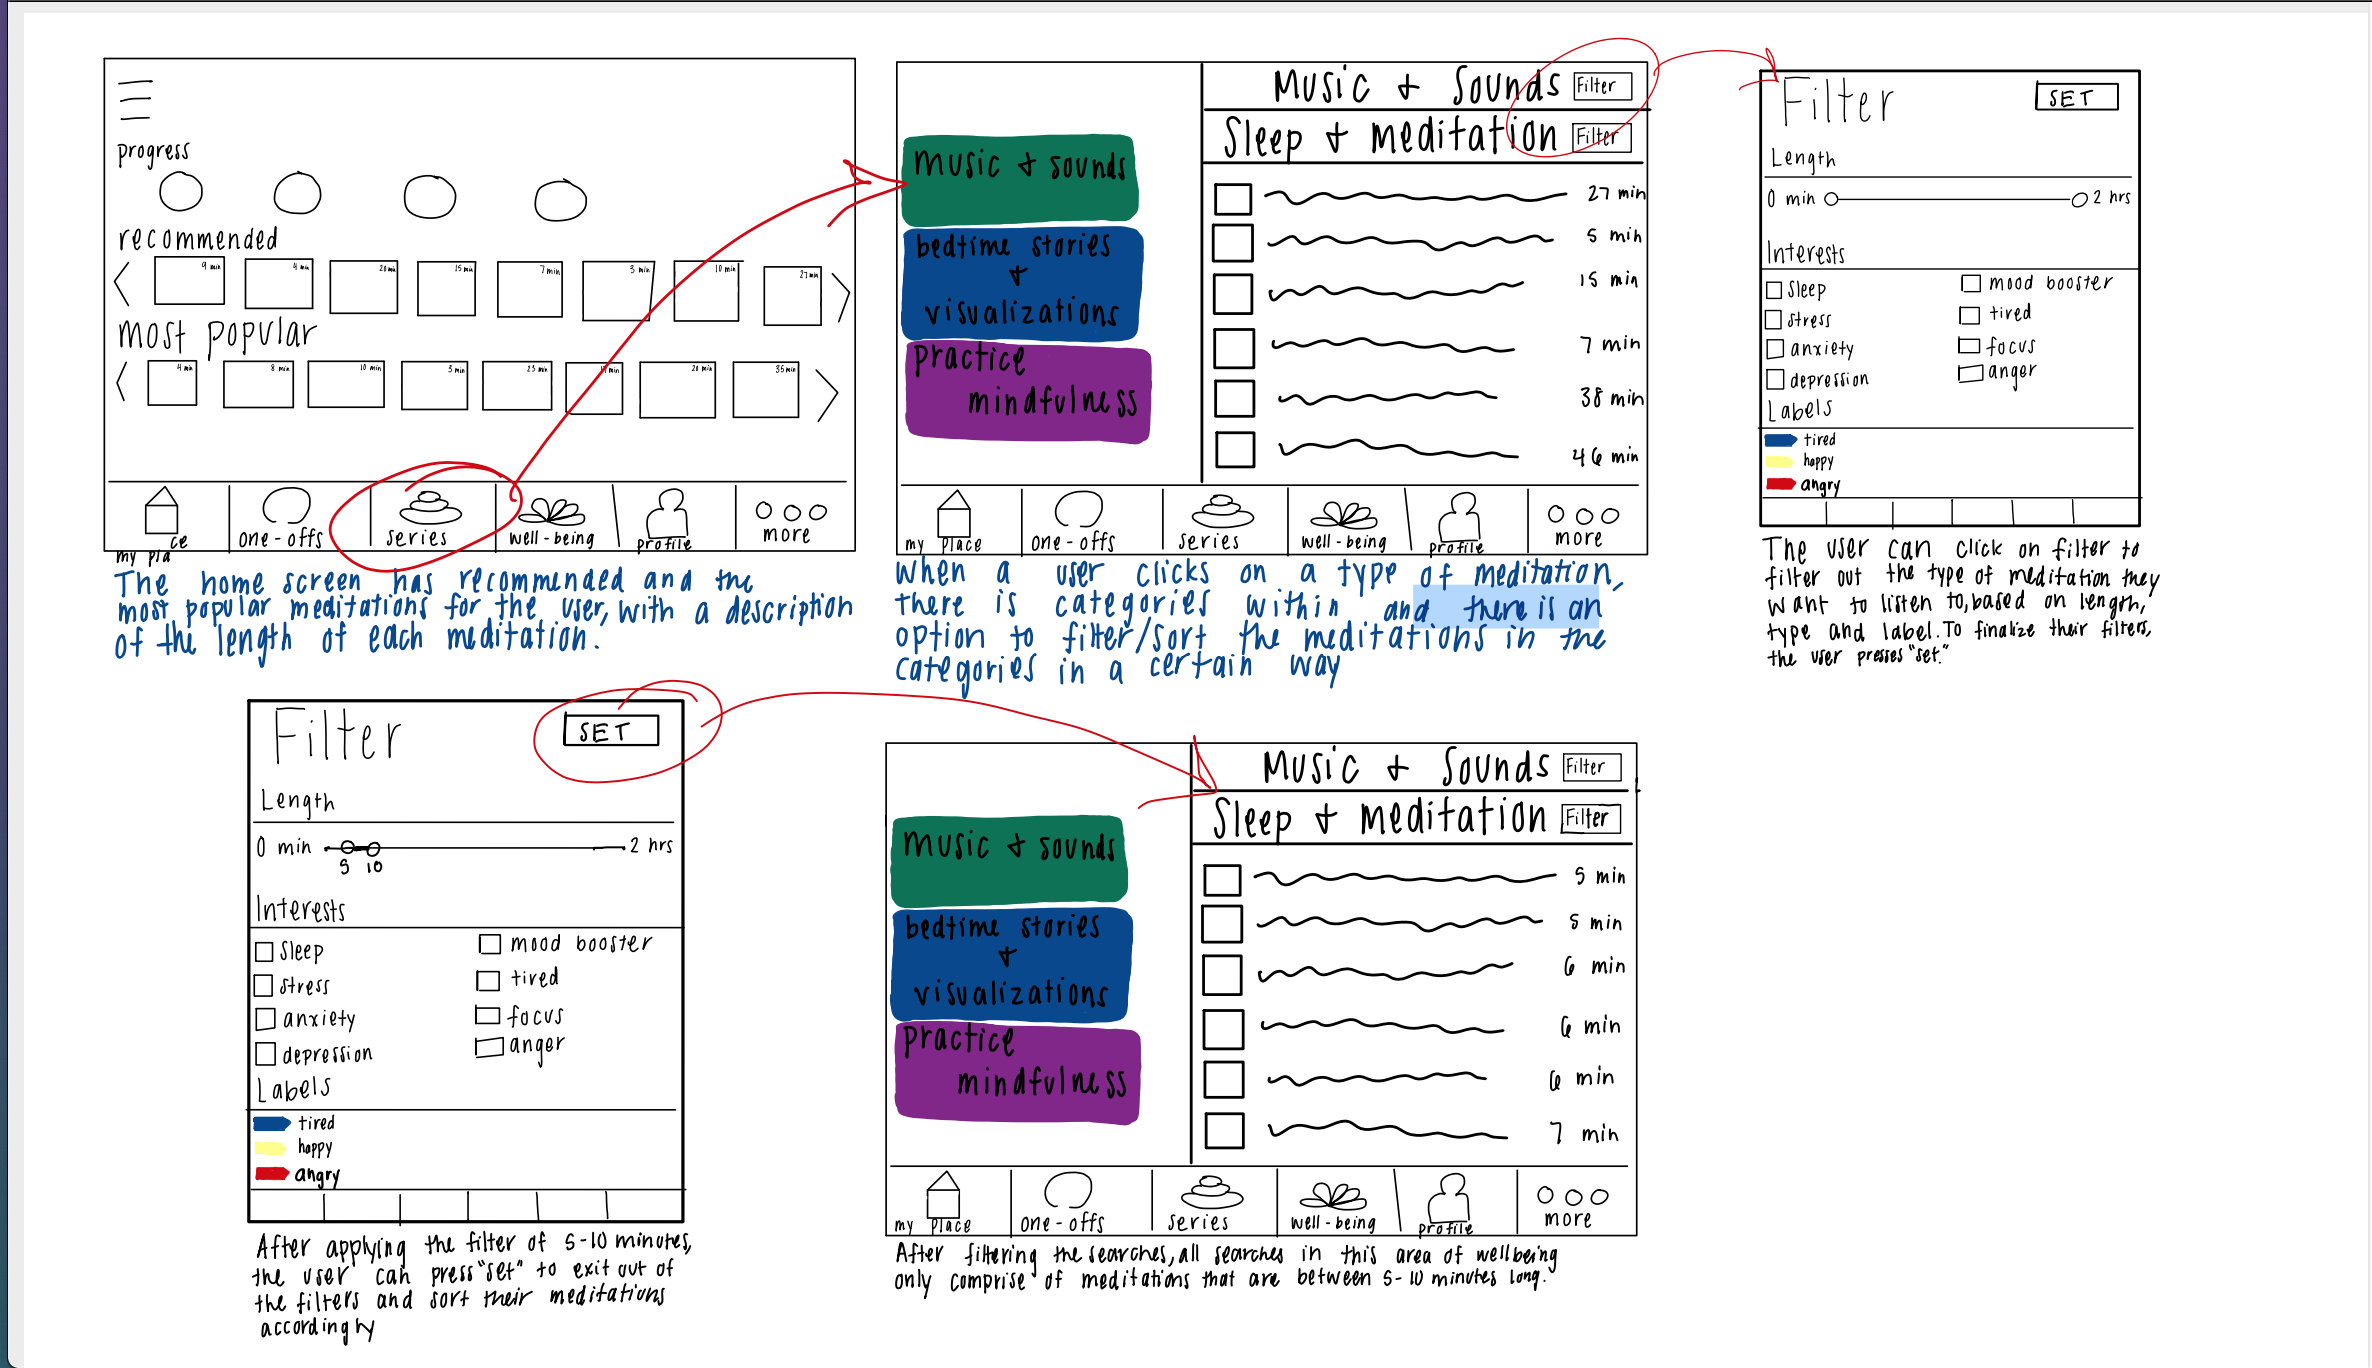 progress
recommended
9 min 4 min 20 min 15 min 7 min 3 min 10 min 27 min
most popular
4 min 8 min 10 min 3 min 23 min 17 min 20 min 35 min
my place one-offs series well-being profile more
The home screen has recommended and the
most popular meditations for the user, with a description
of the length of each meditation.
Music + Sounds Filter
Sleep + meditation Filter
music + sounds
bedtime stories
+
visualizations
practice
mindfulness
27 min
5 min
15 min
7 min
38 min
46 min
my place one-offs series well-being profile more
When a user clicks on a type of meditation,
there is categories within and there is an
option to filter/sort the meditations in the
categories in a certain way
Filter SET
Length
0 min 2 hrs
Interests
sleep mood booster
stress tired
anxiety focus
depression anger
Labels
tired
happy
angry
The user can click on filter to
filter out the type of meditation they
want to listen to, based on length,
type and label. To finalize their filters,
the user presses "set."
Filter SET
Length
0 min 2 hrs
5 10
Interests
sleep mood booster
stress tired
anxiety focus
depression anger
Labels
tired
happy
angry
After applying the filter of 5-10 minutes,
the user can press "set" to exit out of
the filters and sort their meditations
accordingly
Music + Sounds Filter
Sleep + meditation Filter
music + sounds
bedtime stories
+
visualizations
practice
mindfulness
5 min
5 min
6 min
6 min
6 min
7 min
my place one-offs series well-being profile more
After filtering the searches, all searches in this area of wellbeing
only comprise of meditations that are between 5-10 minutes long.